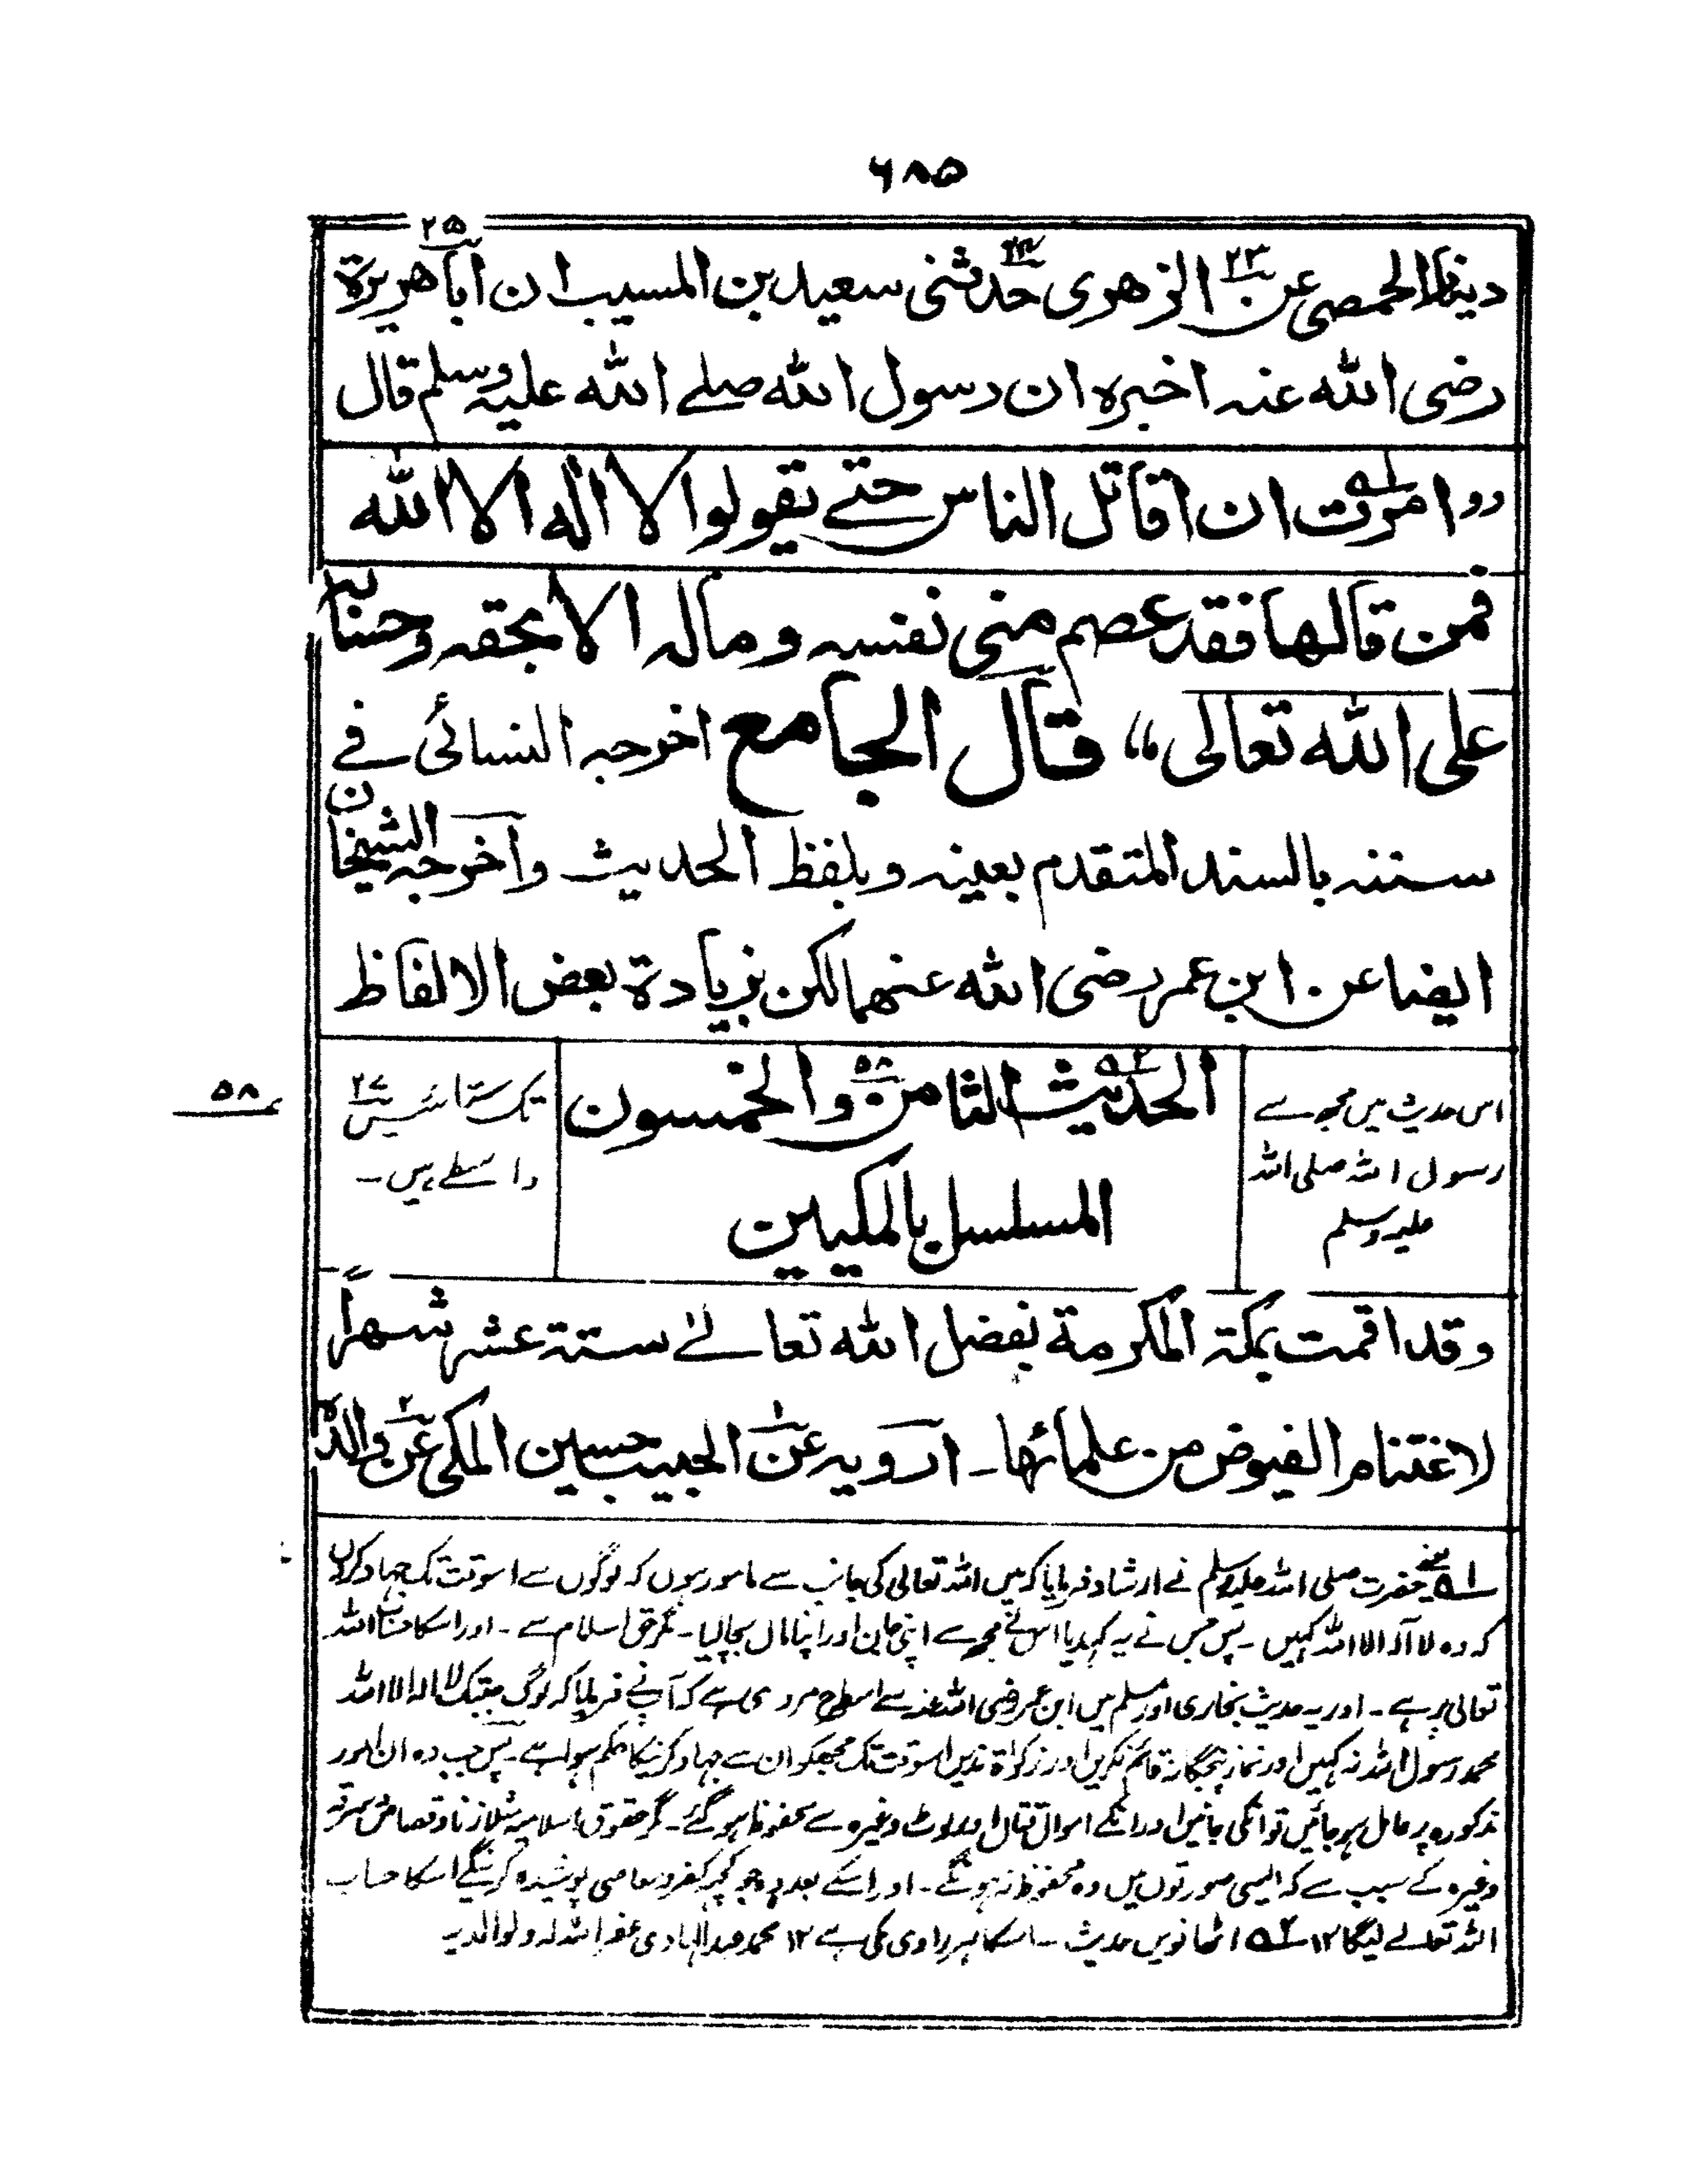 ۶۸۵
دینار الحمصی عن ۲۳ الزھری حدثنی ۲۴ سعید بن المسیب ان ۲۵ اباھریرۃ
رضی اللہ عنہ اخبرہ ان رسول اللہ صلے اللہ علیہ وسلم قال
’’امرت ان اقاتل الناس حتے یقولوا لا الٰہ الا اللہ
فمن قالھا فقد عصم منی نفسہ ومالہ الا بحقہ وحسابہ
علی اللہ تعالی،، قال الجامع اخرجہ النسائی فے
سننہ بالسند المتقدم بعینہ وبلفظ الحدیث واخرجہ الشیخان
ایضا عن ابن عمر رضی اللہ عنھما لکن بزیادۃ بعض الالفاظ
اس حدیث میں مجھ سے
رسول اللہ صلی اللہ
علیہ وسلم
الحدیث الثامن ۵۸ والخمسون
المسلسل بالمکیین
تک ستائیس ۲۷
واسطے ہیں۔
۵۸
وقد اقمت بمکۃ المکرمۃ بفضل اللہ تعالےٰ ستۃ عشر شھراً
لاغتنام الفیوض من علمائھا۔ ارویہ عن ۱ الحبیب حسین المکی عن ۲ والدہ
۱؎ حضرت صلی اللہ علیہ وسلم نے ارشاد فرمایا کہ میں اللہ تعالی کی جانب سے مامور ہوں کہ لوگوں سے اسوقت تک جہاد کروں
کہ وہ لا الہ الا اللہ کہیں ۔ پس جس نے یہ کہدیا اس نے مجھ سے اپنی جان اور اپنا مال بچالیا۔ مگر حق اسلام سے ۔ اور اسکا حساب اللہ
تعالی پر ہے ۔ اور یہ حدیث بخاری اور مسلم میں ابن عمر رضی اللہ عنہ سے اسطرح مروی ہے کہ آپنے فرمایا کہ لوگ جبتک لا الہ الا اللہ
محمد رسول اللہ نہ کہیں اور نماز پنجگانہ قائم نکریں اور زکواۃ ندیں اسوقت تک مجھکو ان سے جہاد کرنیکا حکم ہوا ہے ۔ پس جب وہ ان امور
مذکورہ پر عامل ہوجائیں تو انکی جانیں اور انکے اموال قتال اور لوٹ وغیرہ سے محفوظ ہوگئے ۔ مگر حقوق اسلامیہ مثلا زنا وقصاص سرقہ
وغیرہ کے سبب سے کہ ایسی صورتوں میں وہ محفوظ نہ ہونگے ۔ اور اسکے بعد جو کچھ کفر ومعاصی پوشیدہ کرینگے اسکا حساب
اللہ تعالے لیگا ۱۲ ۲؎ اٹھانویں حدیث ۔ اسکا ہر راوی مکی ہے ۱۲ محمد عبدالہادی غفر اللہ لہ ولوالدیہ